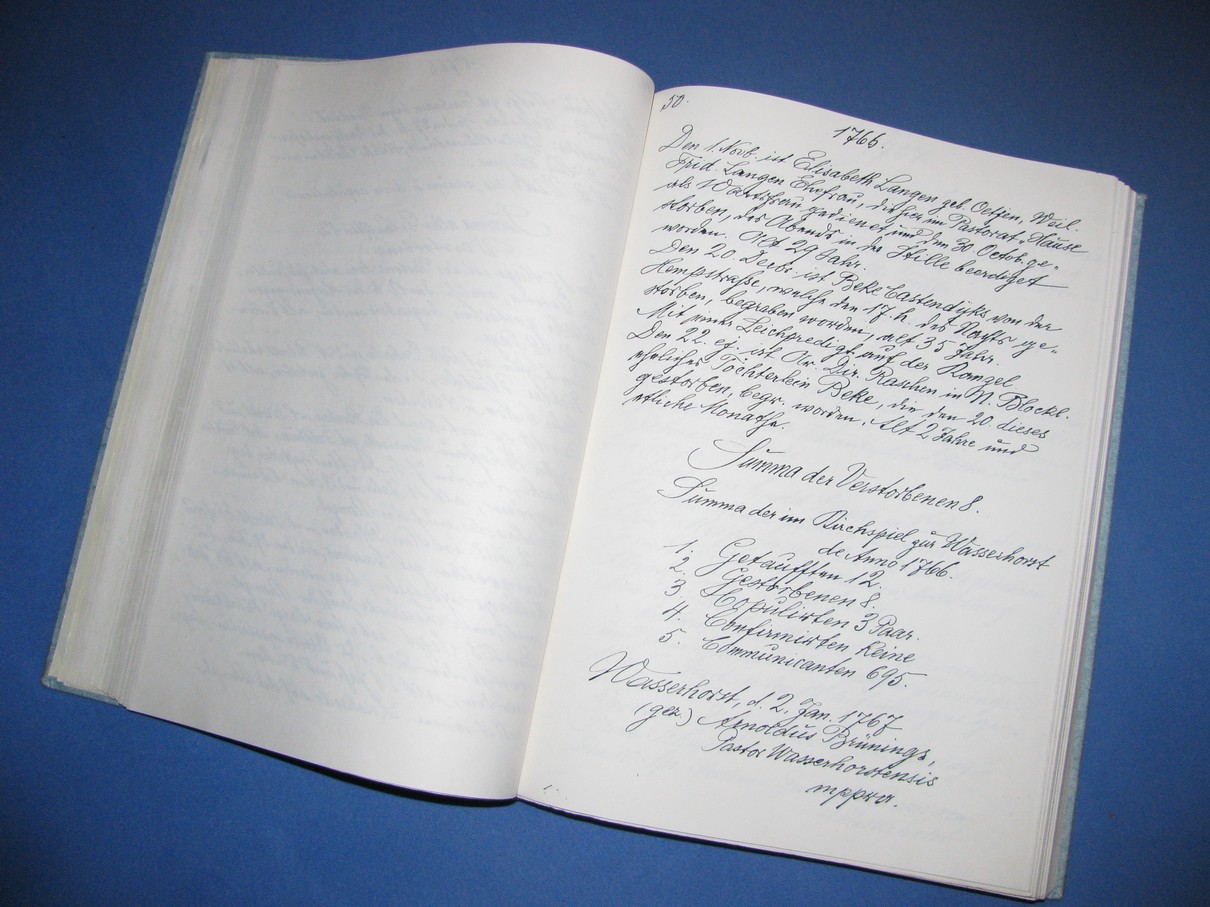 50.
1766.
Den 1. Novb. ist Elisabeth Langen geb. Oetjen, Weil.
Frid. Langen Ehefrau, die hier im Pastorat-Hause
als Wartsfrau gedienet und den 30 Octob. ge-
storben, des Abends in der Stille beerdiget
worden. Alt 29 Jahr.
Den 20. Decbr. ist Beke Castendijks von der
Hempstraße, welche den 17. h. des Nachts ge-
storben, begraben worden, alt 35 Jahr.
Mit einer Leichpredigt auf der Kanzel.
Den 22. ej. ist Hr. Dir. Raschen in N. Blockl.
eheliches Töchterlein Beke, die den 20. dieses
gestorben, begr. worden. Alt 2 Jahre und
etliche Monathe.
Summa der Verstorbenen 8.
Summa der im Kirchspiel zur Wasserhorst
de Anno 1766.
1. Getaufften 12.
2. Gestorbenen 8.
3. Copulirten 3 Paar.
4. Confirmirten Keine
5. Communicanten 695.
Wasserhorst, d. 2. Jan. 1767
(gez.) Arnoldus Brünings,
Pastor Wasserhorstensis
mppra.